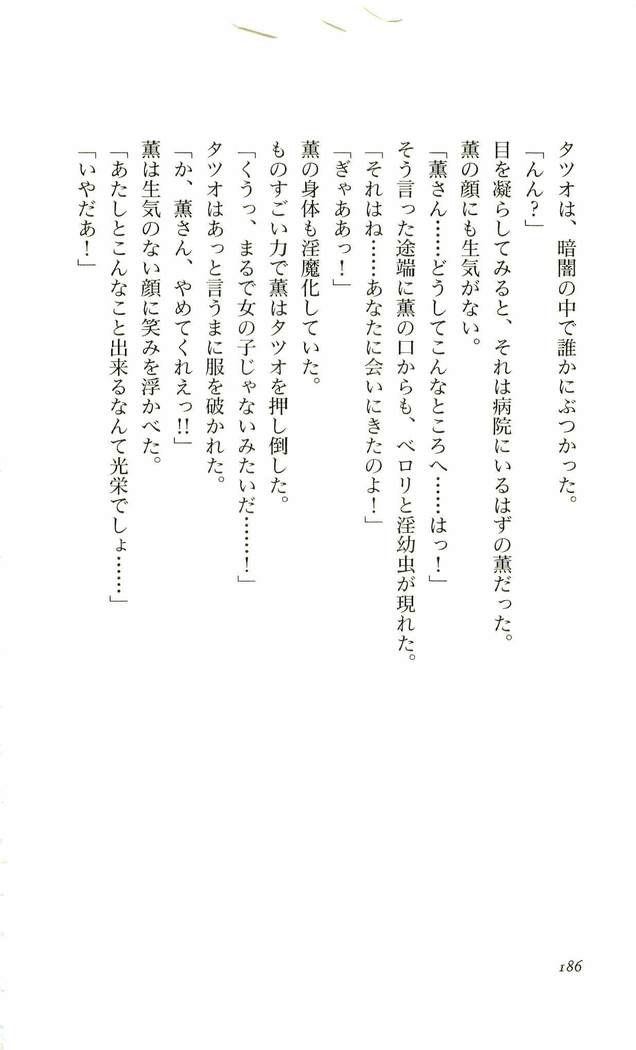 タツオは、暗闇の中で誰かにぶつかった。
「んん?」
目を凝らしてみると、それは病院にいるはずの薫だった。
薫の顔にも生気がない。
「薫さん……どうしてこんなところへ……はっ!」
そう言った途端に薫の口からも、ベロリと淫幼虫が現れた。
「それはね……あなたに会いにきたのよ!」
「ぎゃああっ!」
薫の身体も淫魔化していた。
ものすごい力で薫はタツオを押し倒した。
「くうっ、まるで女の子じゃないみたいだ………!」
タツオはあっと言うまに服を破かれた。
「か、薫さん、やめてくれえっ!!」
薫は生気のない顔に笑みを浮かべた。
「あたしとこんなこと出来るなんて光栄でしょ……」
「いやだあ!」
186